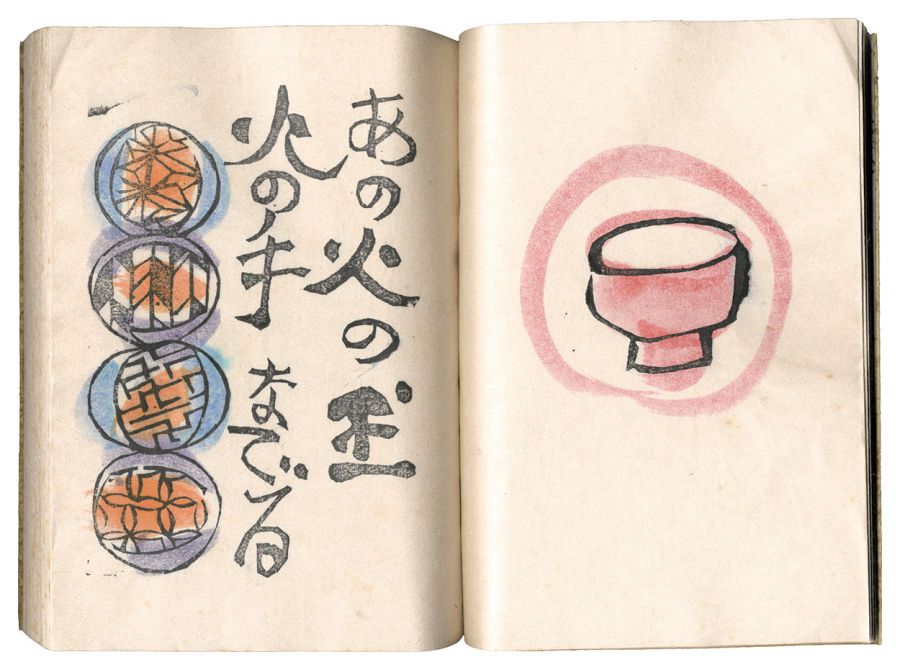 あの火の玉
火の手なでる